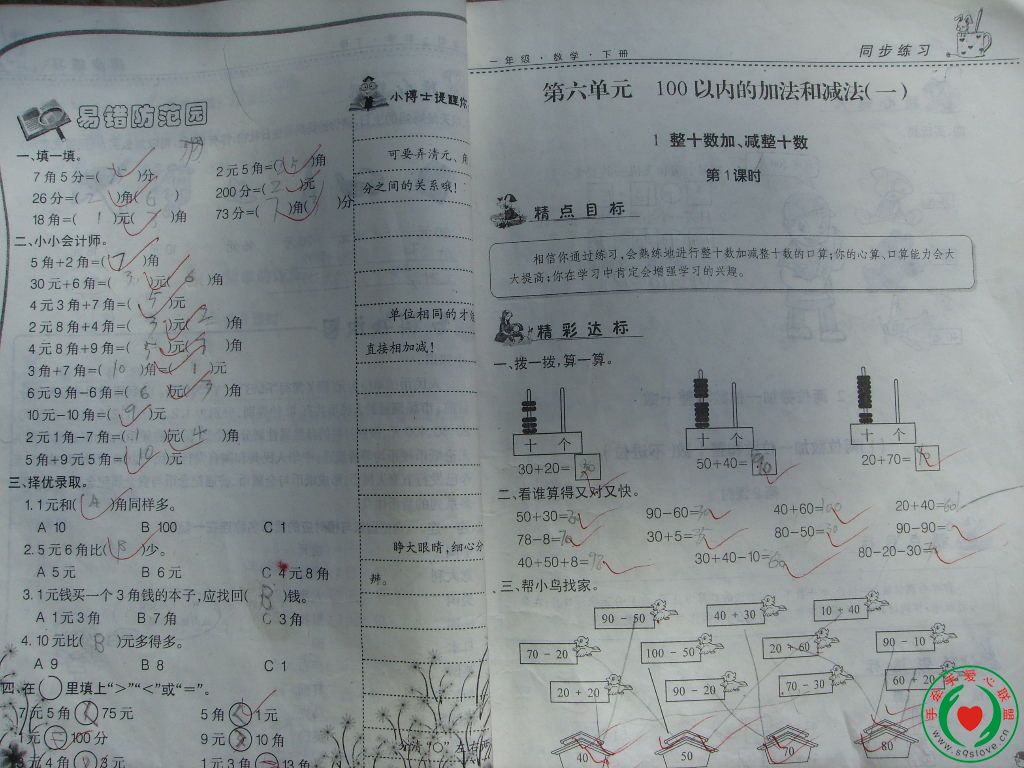 易错防范园
一、填一填。
7角5分=( )分 2元5角=( )角
26分=(2)角(6) 200分=(2)元
18角=(1)元( )角 73分=(7)角( )分
二、小小会计师。
5角+2角=(7)角
30元+6角=(3)元(6)角
4元3角+7角=(5)元
2元8角+4角=(3)元(2)角
4元8角+9角=(5)元( )角
3角+7角=(10)角=(1)元
6元9角-6角=(6)元(3)角
10元-10角=(9)元
2元1角-7角=(1)元(4)角
5角+9元5角=(10)元
三、择优录取。
1.1元和(A)角同样多。
A 10 B 100 C 1
2.5元6角比(B)少。
A 5元 B 6元 C 4元8角
3.1元钱买一个3角钱的本子,应找回(B)钱。
A 1元3角 B 7角 C 3角
4.10元比(B)元多得多。
A 9 B 8 C 1
四、在○里填上“>”“<”或“=”。
7元5角 75元 5角<1元
1元=100分 9元 10角
元4角 3元 1元3角=13角
小博士提醒你
可要弄清元、角
分之间的关系哦!
单位相同的才能
直接相加减!
睁大眼睛,细心分
辨。
“○”左右两
一年级·数学·下册
同步练习
第六单元 100以内的加法和减法(一)
1 整十数加、减整十数
第1课时
精点目标
相信你通过练习,会熟练地进行整十数加减整十数的口算;你的心算、口算能力会大
大提高;你在学习中肯定会增强学习的兴趣。
精彩达标
一、拨一拨,算一算。
十 个 十 个 十 个
30+20= 50+40=90 20+70=
二、看谁算得又对又快。
50+30= 90-60= 40+60=100 20+40=60
78-8=70 30+5= 80-50=30 90-90=
40+50+8=98 30+40-10=60 80-20-30=
三、帮小鸟找家。
90-50 40+30 10+40
70-20 100-50 20+60 90-10
20+20 90-20 70-30 60+20
40 50 70 80
手牵手爱心联盟
www.sqslove.cn